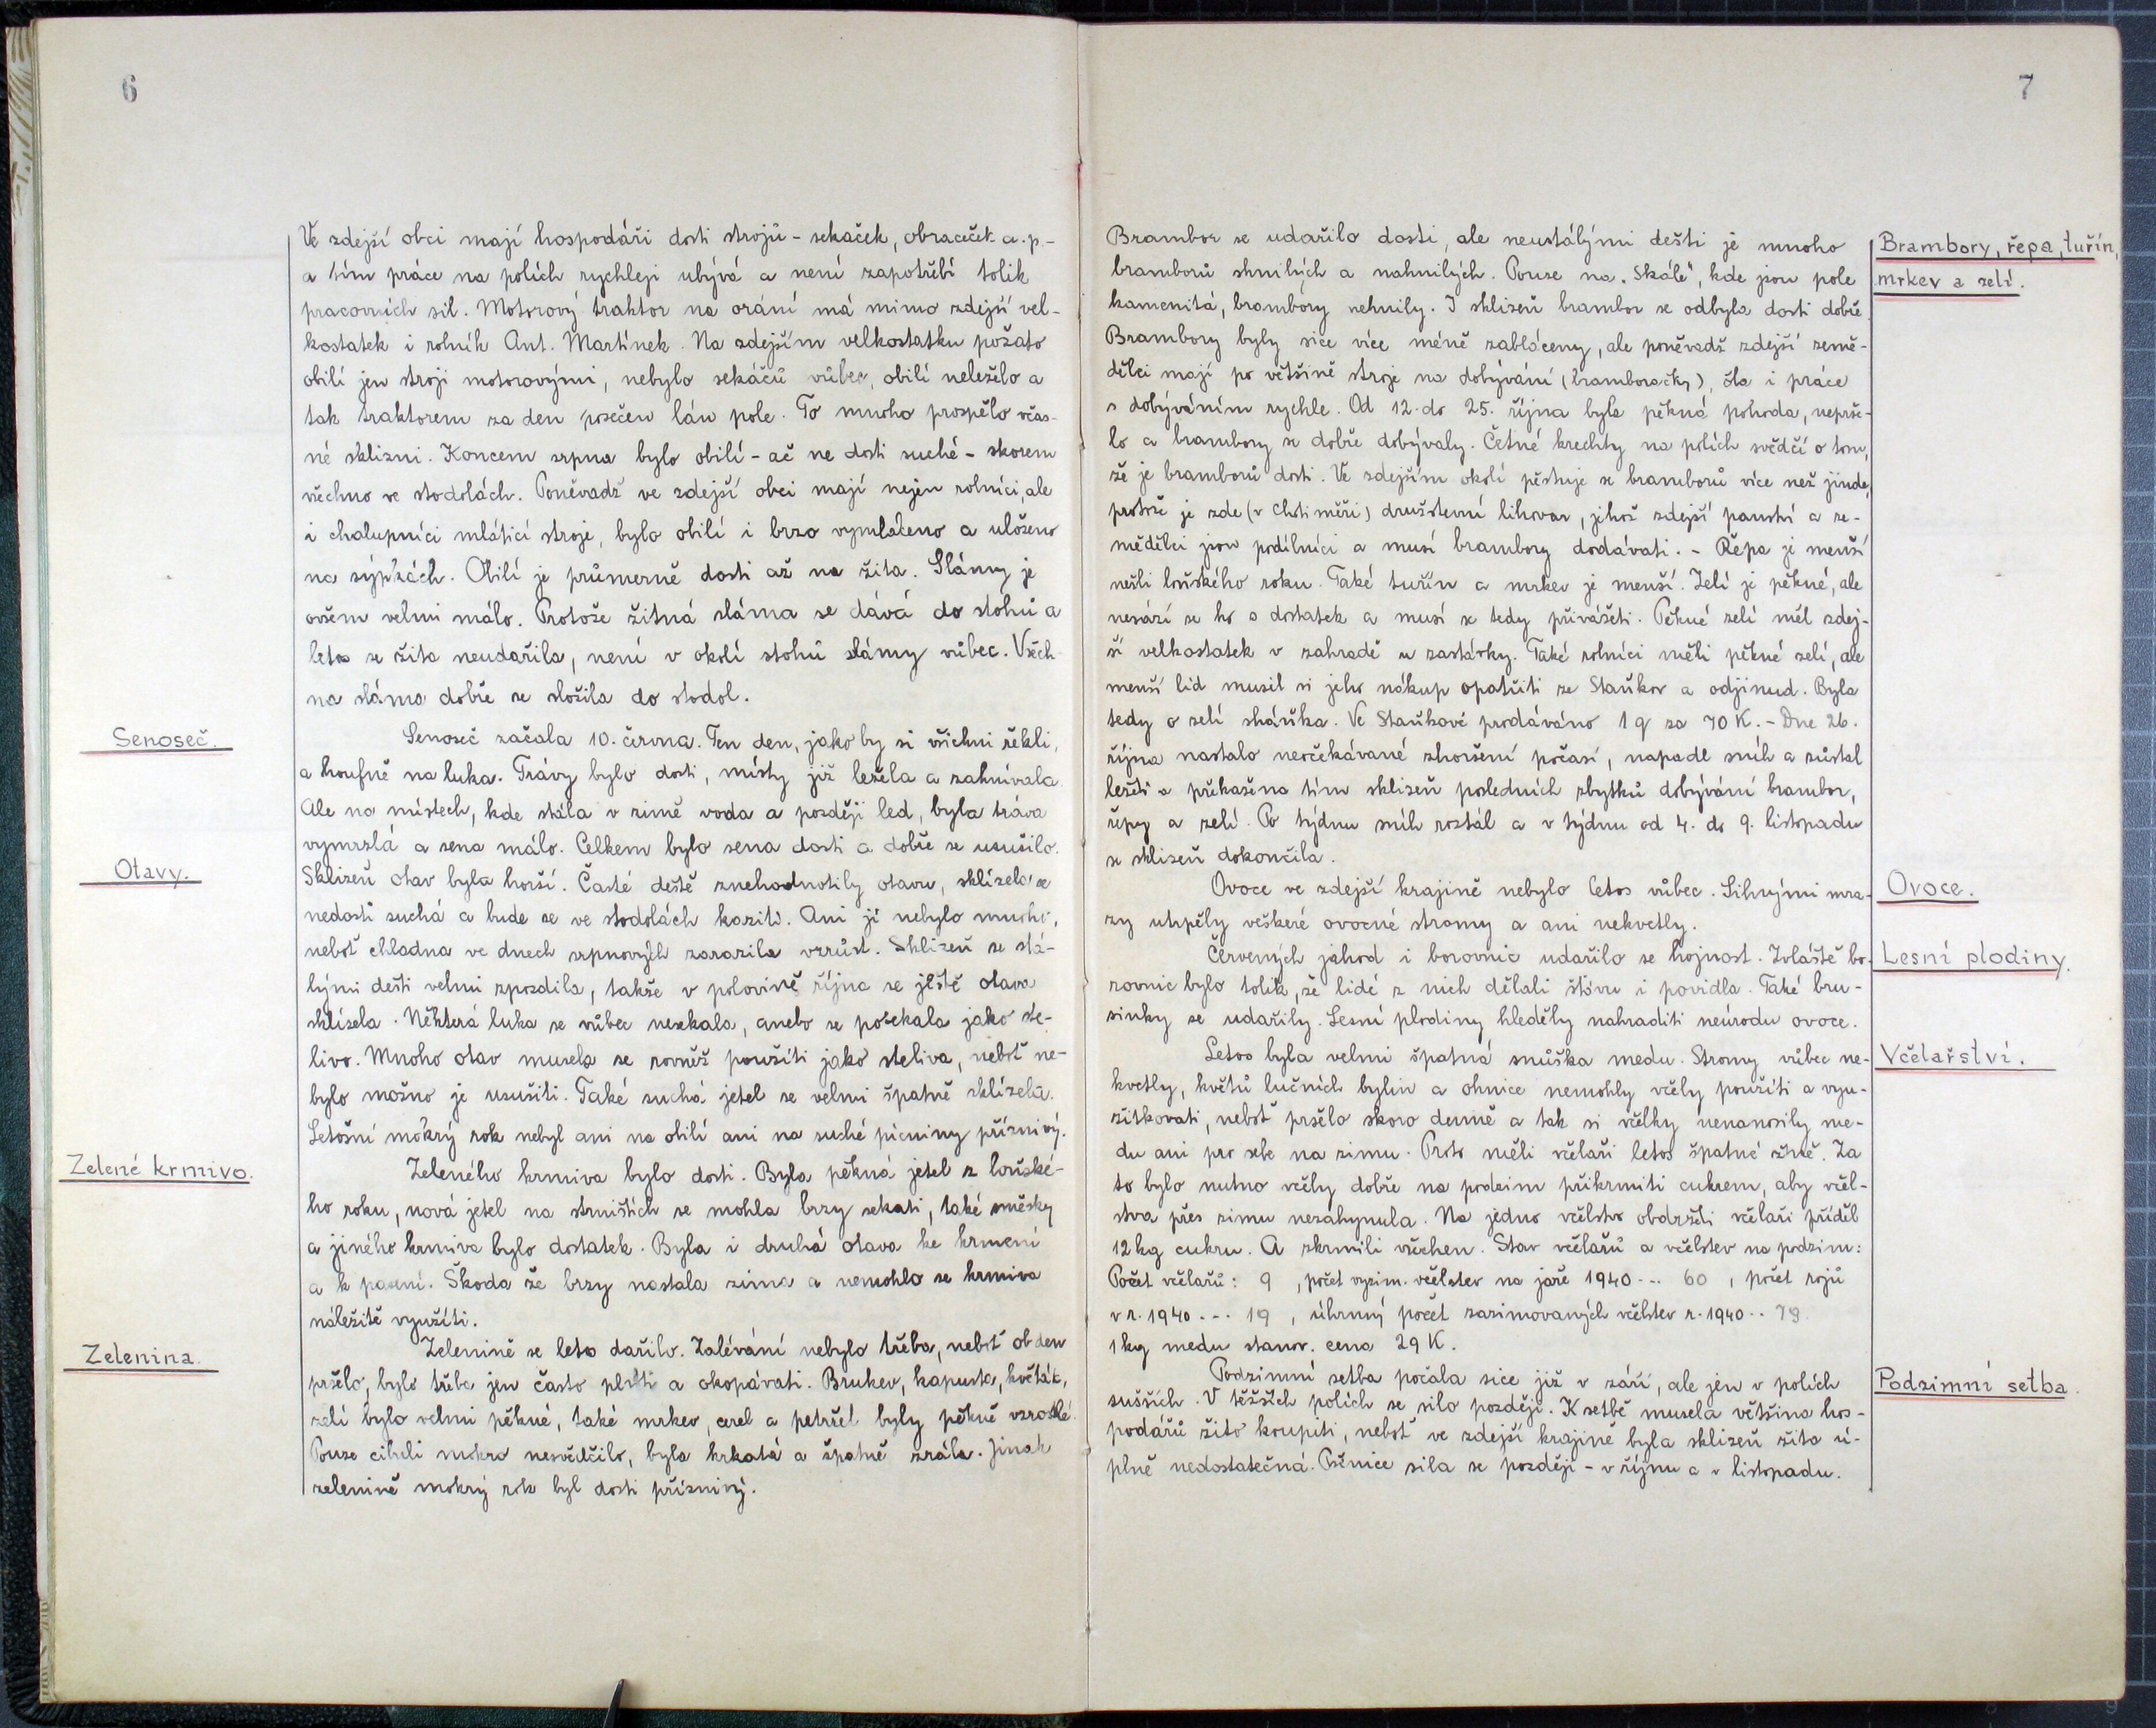 6
Ve zdejší obci mají hospodáři dosti strojů - sekaček, obraceček a.p. -
a tím práce na polích rychleji ubývá a není zapotřebí tolik
pracovních sil. Motorový traktor na orání má mimo zdejší vel-
kostatek i rolník Ant. Martínek. Na zdejším velkostatku požato
obilí jen stroji motorovými, nebylo sekáčů vůbec, obilí neleželo a
tak traktorem za den posečen lán pole. To mnoho prospělo včas-
né sklizni. Koncem srpna bylo obilí - ač ne dosti suché - skorem
všechno ve stodolách. Poněvadž ve zdejší obci mají nejen rolníci, ale
i chalupníci mlátící stroje, bylo obilí i brzo vymláceno a uloženo
na sýpkách. Obilí je průměrně dosti až na žita. Slámy je
ovšem velmi málo. Protože žitná sláma se dává do stohů a
letos se žita neudařila, není v okolí stohů slámy vůbec. Všech-
na sláma dobře se složila do stodol.
Senoseč.
Senoseč začala 10. června. Ten den, jako by si všichni řekli,
a houfně na luka. Trávy bylo dosti, místy již ležela a zahnívala.
Ale na místech, kde stála v zimě voda a později led, byla tráva
vymrzlá a sena málo. Celkem bylo sena dosti a dobře se usušilo.
Otavy.
Sklizeň otav byla horší. Časté deště znehodnotily otavu, sklízela se
nedosti suchá a bude se ve stodolách kaziti. Ani jí nebylo mnoho,
neboť chladna ve dnech srpnových zarazila vzrůst. Sklizeň se stá-
lými dešti velmi zpozdila, takže v polovině října se ještě otava
sklízela. Některá luka se vůbec nesekala, anebo se posekala jako ste-
livo. Mnoho otav musela se rovněž použíti jako steliva, neboť ne-
bylo možno je usušiti. Také suchá jetel se velmi špatně sklízela.
Letošní mokrý rok nebyl ani na obilí ani na suché pícniny příznivý.
Zelené krmivo.
Zeleného krmiva bylo dosti. Byla pěkná jetel z loňské-
ho roku, nová jetel na strništích se mohla brzy sekati, také směsky
a jiného krmiva bylo dostatek. Byla i druhá otava ke krmení
a k pasení. Škoda že brzy nastala zima a nemohlo se krmiva
náležitě využíti.
Zelenina.
Zelenině se letos dařilo. Zalévání nebylo třeba, neboť obden
pršelo, bylo třeba jen často plíti a okopávati. Brukev, kapusta, květák,
zelí bylo velmi pěkné, také mrkev, cerel a petržel byly pěkně vzrostlé.
Pouze cibuli mokro nesvědčilo, byla krkatá a špatně zrála. Jinak
zelenině mokrý rok byl dosti příznivý.
7
Brambory, řepa, tuřín,
mrkev a zelí.
Brambor se udařilo dosti, ale neustálými dešti je mnoho
bramborů shnilých a nahnilých. Pouze na „Skále", kde jsou pole
kamenitá, brambory nehnily. I sklizeň brambor se odbyla dosti dobře.
Brambory byly sice více méně zabláceny, ale poněvadž zdejší země-
dělci mají po většině stroje na dobývání (bramboračky), šla i práce
s dobýváním rychle. Od 12. do 25. října byla pěkná pohoda, neprše-
lo a brambory se dobře dobývaly. Četné krechty na polích svědčí o tom,
že je bramborů dosti. Ve zdejším okolí pěstuje se bramborů více než jinde,
protože je zde (v Chotiměři) družstevní lihovar, jehož zdejší panství a ze-
mědělci jsou podílníci a musí brambory dodávati. - Řepa je menší
nežli loňského roku. Také tuřín a mrkev je menší. Zelí je pěkné, ale
nesází se ho o dostatek a musí se tedy přivážeti. Pěkné zelí měl zdej-
ší velkostatek v zahradě u zastávky. Také rolníci měli pěkné zelí, ale
menší lid musil si jeho nákup opatřiti ze Staňkov a odjinud. Byla
tedy o zelí sháňka. Ve Staňkově prodáváno 1 q za 70 K. - Dne 26.
října nastalo neočekávané zhoršení počasí, napadl sníh a zůstal
ležeti a překažena tím sklizeň posledních zbytků dobývání brambor,
řepy a zelí. Po týdnu sníh roztál a v týdnu od 4. do 9. listopadu
se sklizeň dokončila.
Ovoce.
Ovoce ve zdejší krajině nebylo letos vůbec. Silnými mra-
zy utrpěly veškeré ovocné stromy a ani nekvetly.
Lesní plodiny.
Červených jahod i borovnic udařilo se hojnost. Zvláště bo-
rovnic bylo tolik, že lidé z nich dělali šťávu i povidla. Také bru-
sinky se udařily. Lesní plodiny hleděly nahraditi neúrodu ovoce.
Včelařství.
Letos byla velmi špatná snůška medu. Stromy vůbec ne-
kvetly, květů lučních bylin a ohnice nemohly včely použíti a vyu-
žitkovati, neboť pršelo skoro denně a tak si včelky nenanosily me-
du ani pro sebe na zimu. Proto měli včelaři letos špatné žně. Za
to bylo nutno včely dobře na podzim přikrmiti cukrem, aby včel-
stva přes zimu nezahynula. Na jedno včelstvo obdrželi včelaři příděl
12 kg cukru. A zkrmili všechen. Stav včelařů a včelstev na podzim:
Počet včelařů: 9, počet vyzim. včelstev na jaře 1940 --- 60, počet rojů
v r. 1940 --- 19, úhrnný počet zazimovaných včelstev r. 1940 -- 79.
1 kg medu stanov. cena 29 K.
Podzimní setba.
Podzimní setba počala sice již v září, ale jen v polích
sušších. V těžších polích se silo později. K setbě musela většina hos-
podářů žito koupiti, neboť ve zdejší krajině byla sklizeň žita ú-
plně nedostatečná. Pšenice sila se později - v říjnu a v listopadu.